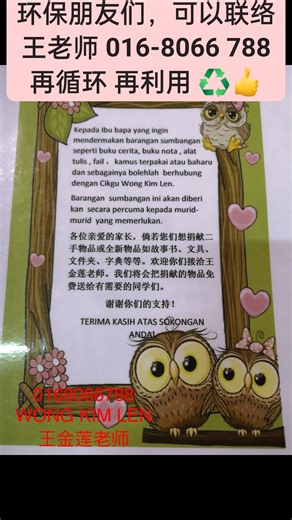 环保朋友们，可以联络
王老师 016-8066 788
再循环 再利用 ♻️👍
Kepada Ibu bapa yang ingin
mendermakan barangan sumbangan
seperti buku cerita, buku nota , alat
tulis , fail 、 kamus terpakai atau baharu
dan sebagainya bolehlah berhubung
dengan Cikgu Wong Kim Len.
Barangan sumbangan ini akan diberi
kan secara percuma kepada murid-
murid yang memerlukan.
各位亲爱的家长，倘若您们想捐献二
手物品或全新物品如故事书、文具、
文件夹、字典等等。欢迎你们接洽王
金莲老师。我们将会把捐献的物品免
费送给有需要的同学们。
谢谢你们的支持！
TERIMA KASIH ATAS SOKONGAN
ANDA!
0168066788
WONG KIM LEN
王金莲老师